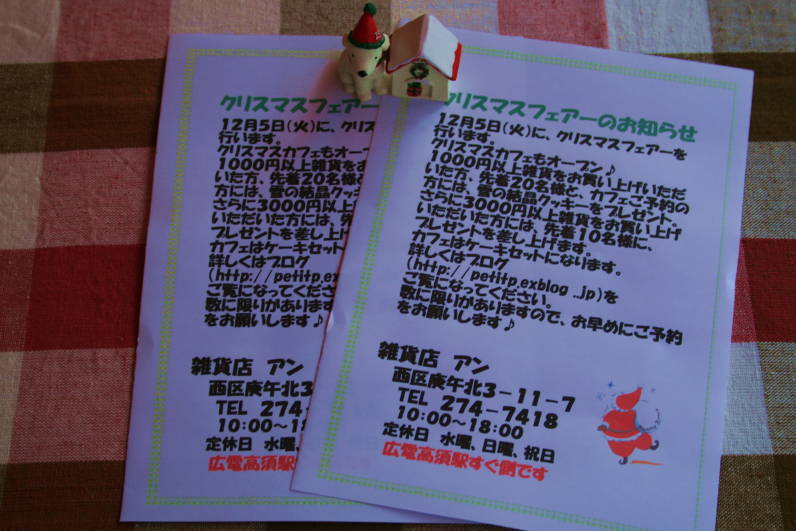 クリスマスフェアー
12月5日(火)に、クリス
行います。
クリスマスカフェもオープ
1000円以上雑貨をお
いた方、先着20名様と
方には、雪の結晶クッキ
さらに3000円以上
いただいた方には、先
プレゼントを差し上げ
カフェはケーキセット
詳しくはブログ
(http://petitp.ex
ご覧になってくださ
数に限りがあります
をお願いします♪
雑貨店 アン
西区庚午北3
TEL 274-
10:00~18
定休日 水曜、
広電高須駅
クリスマスフェアーのお知らせ
12月5日(火)に、クリスマスフェアーを
行います。
クリスマスカフェもオープン♪
1000円以上雑貨をお買い上げいただ
いた方、先着20名様と、カフェご予約の
方には、雪の結晶クッキーをプレゼント。
さらに3000円以上雑貨をお買い上げ
いただいた方には、先着10名様に、
プレゼントを差し上げます。
カフェはケーキセットになります。
詳しくはブログ
(http://petitp.exblog.jp)を
ご覧になってください。
数に限りがありますので、お早めにご予約
をお願いします♪
雑貨店 アン
西区庚午北3-11-7
TEL 274-7418
10:00~18:00
定休日 水曜、日曜、祝日
広電高須駅すぐ側です